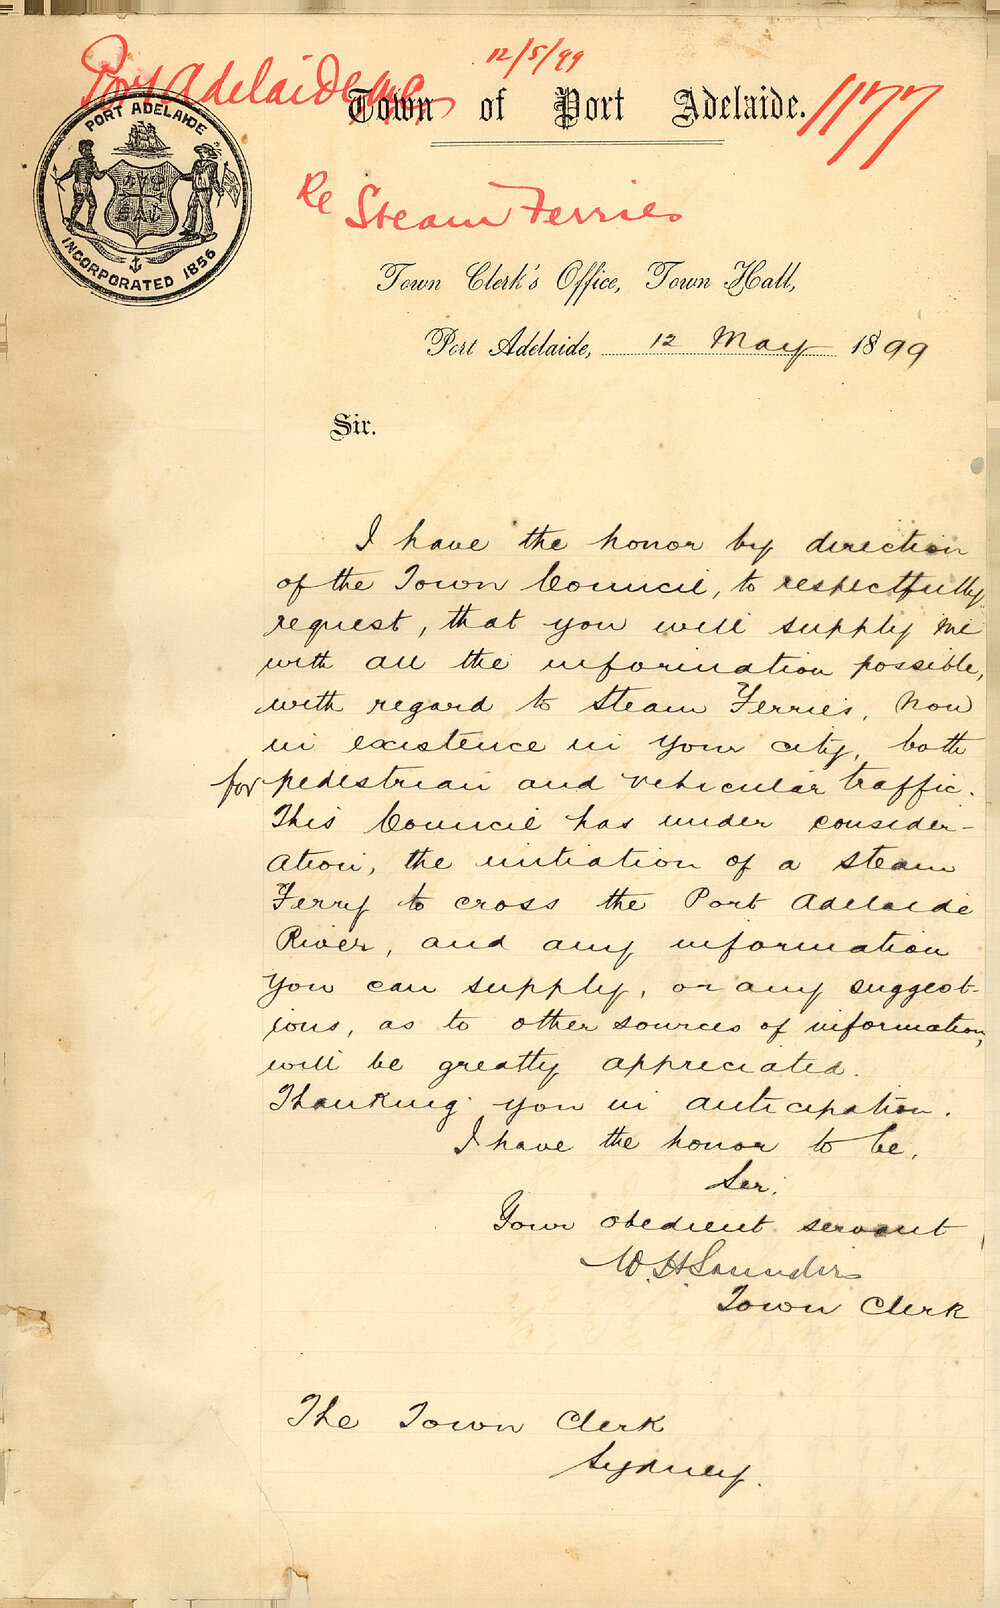 Port Adelaide M.C.
12/5/99
1177
Town of Port Adelaide.
PORT ADELAIDE
INCORPORATED 1856
Re Steam Ferries
Town Clerk's Office, Town Hall,
Port Adelaide, 12 May 1899
Sir.
I have the honor by direction
of the Town Council, to respectfully
request, that you will supply me
with all the information possible,
with regard to Steam Ferries, now
in existence in your city, both
for pedestrian and vehicular traffic.
This Council has under consider-
ation, the initiation of a steam
Ferry to cross the Port Adelaide
River, and any information
you can supply, or any suggest-
ions, as to other sources of information,
will be greatly appreciated.
Thanking you in anticipation.
I have the honor to be,
Sir,
Your obedient servant
W. H. Saunders
Town Clerk
The Town Clerk
Sydney.